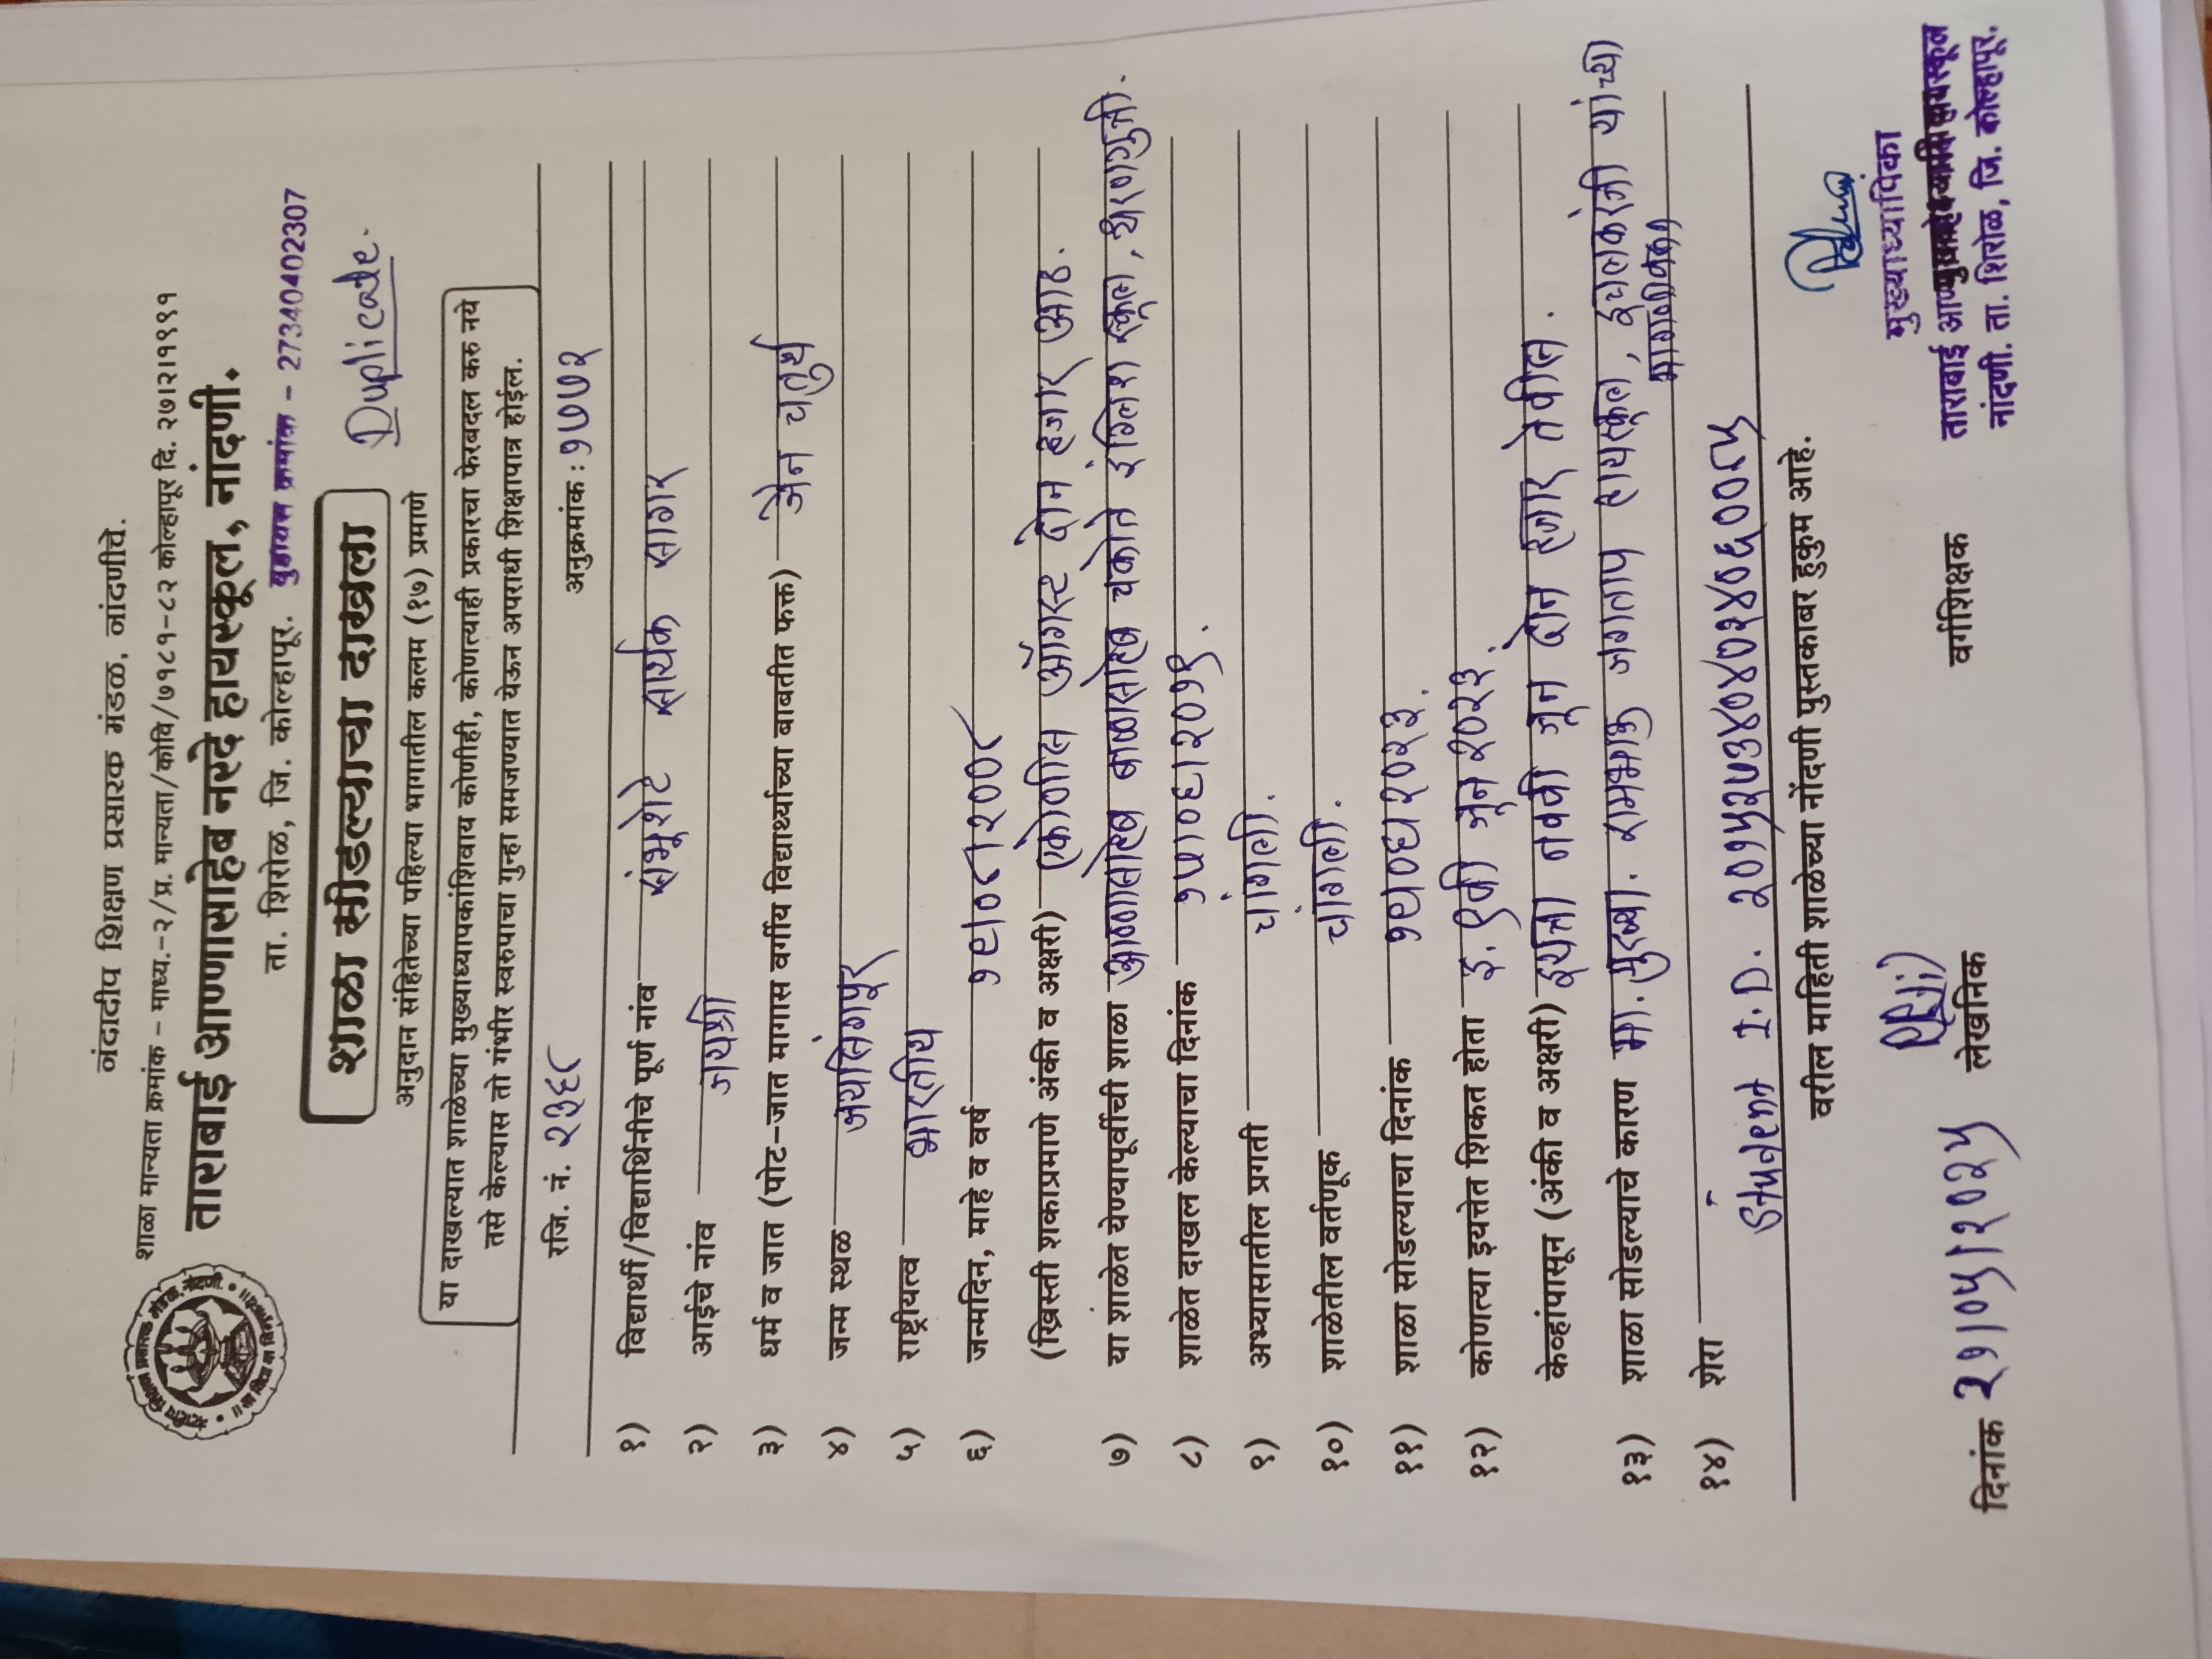 नंदादीप शिक्षण प्रसारक मंडळ, नांदणीचे.
शाळा मान्यता क्रमांक - माध्य.-२/प्र. मान्यता/कोवि/७१८१-८२ कोल्हापूर दि. २७।२।१९९१
ताराबाई आण्णासाहेब नरदे हायस्कूल, नांदणी.
ता. शिरोळ, जि. कोल्हापूर. युडायस क्रमांक - 27340402307
शाळा सोडल्याचा दाखला Duplicate.
अनुदान संहितेच्या पहिल्या भागातील कलम (१७) प्रमाणे
या दाखल्यात शाळेच्या मुख्याध्यापकांशिवाय कोणीही, कोणत्याही प्रकारचा फेरबदल करु नये
तसे केल्यास तो गंभीर स्वरुपाचा गुन्हा समजण्यात येऊन अपराधी शिक्षापात्र होईल.
रजि. नं. २३६८ अनुक्रमांक : १७७२
१) विद्यार्थी/विद्यार्थिनीचे पूर्ण नांव संभूशेटे सार्थक सागर
२) आईचे नांव जयश्री
३) धर्म व जात (पोट-जात मागास वर्गीय विद्यार्थ्याच्या बाबतीत फक्त) जैन चतुर्थ
४) जन्म स्थळ जयसिंगपूर
५) राष्ट्रीयत्व भारतीय
६) जन्मदिन, माहे व वर्ष १९।०८।२००८
(ख्रिस्ती शकाप्रमाणे अंकी व अक्षरी) एकोणीस ऑगस्ट दोन हजार आठ.
७) या शाळेत येण्यापूर्वीची शाळा आण्णासाहेब बाळासाहेब चकोते इंग्लिश स्कूल, धरणगुत्ती.
८) शाळेत दाखल केल्याचा दिनांक १५।०६।२०१९.
९) अभ्यासातील प्रगती चांगली.
१०) शाळेतील वर्तणूक चांगली.
११) शाळा सोडल्याचा दिनांक १९।०६।२०२३.
१२) कोणत्या इयत्तेत शिकत होता इ. ९वी जून २०२३.
केव्हांपासून (अंकी व अक्षरी) इयत्ता नववी जून दोन हजार तेवीस.
१३) शाळा सोडल्याचे कारण मा. मुख्या. रामभाऊ जगताप हायस्कूल, इचलकरंजी यांच्या
मागणीवरून
१४) शेरा
Student I.D. २०१५२७३४०४०२४०६००८५
वरील माहिती शाळेच्या नोंदणी पुस्तकाबर हुकुम आहे.
दिनांक २१।०५।२०२५ लेखनिक वर्गशिक्षक
मुख्याध्यापिका
नांदणी. ता. शिरोळ, जि. कोल्हापूर.